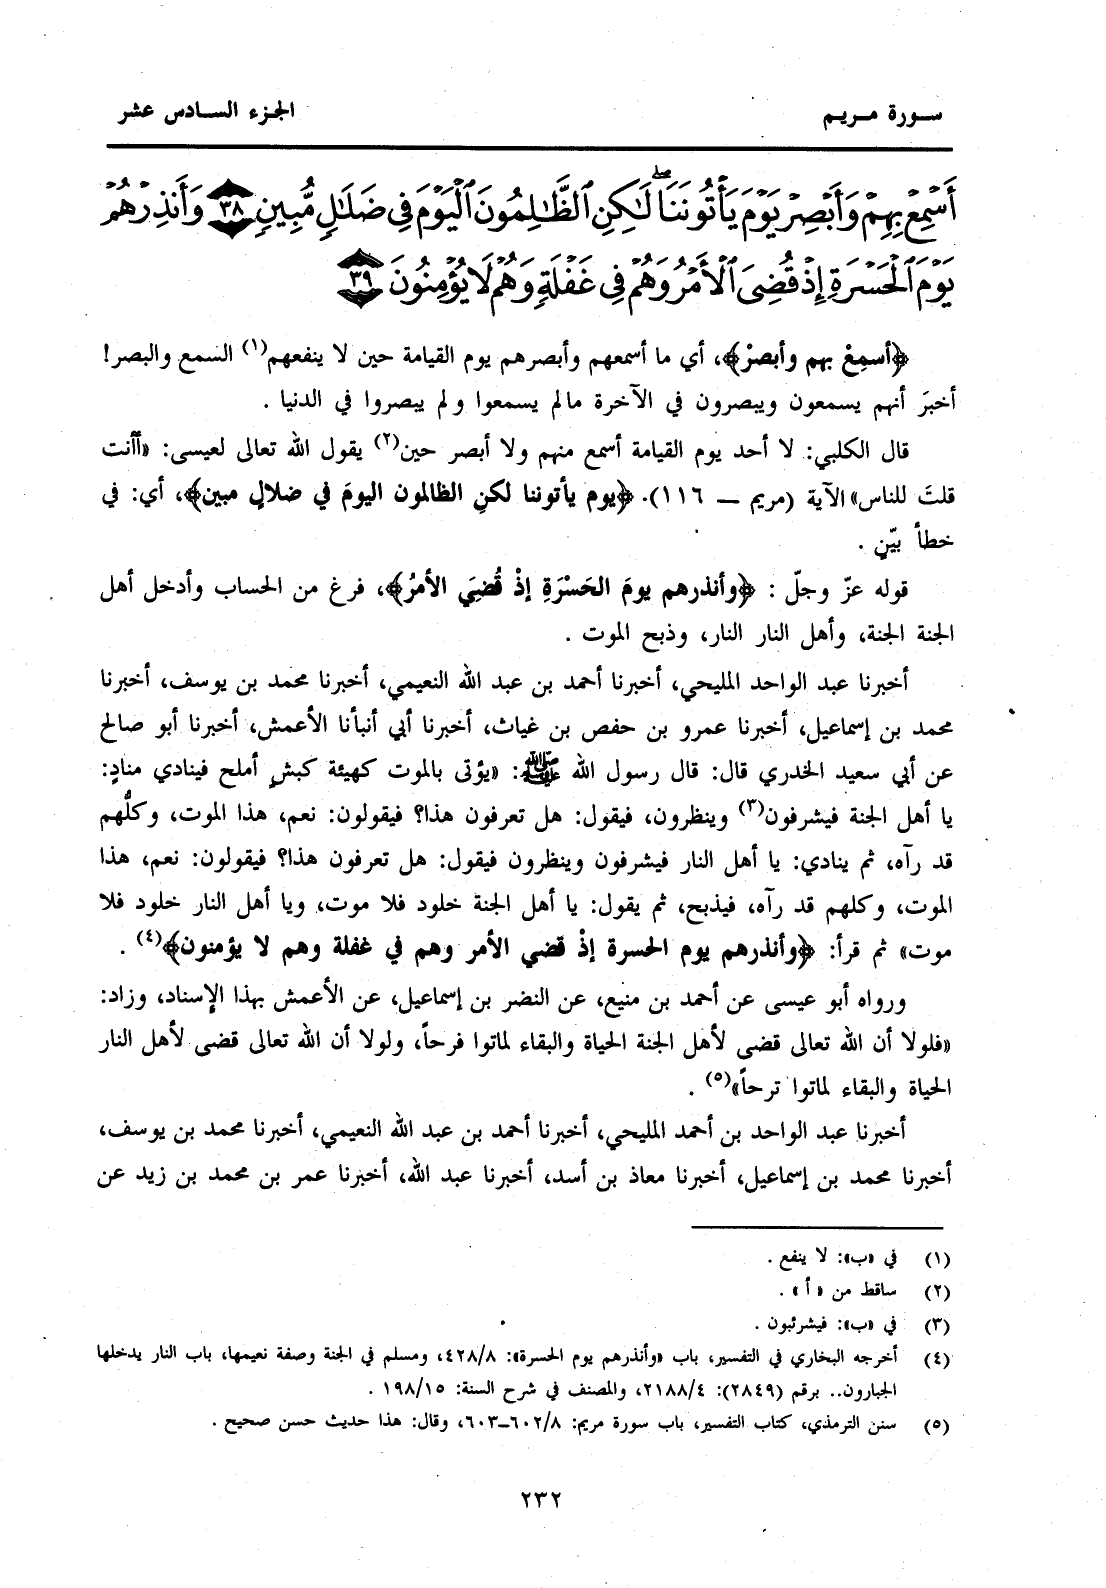 سورة مريم
الجزء السادس عشر
أَسْمِعْ بِهِمْ وَأَبْصِرْ يَوْمَ يَأْتُونَنَا لَٰكِنِ ٱلظَّٰلِمُونَ ٱلْيَوْمَ فِى ضَلَٰلٍ مُّبِينٍ ٣٨ وَأَنذِرْهُمْ
يَوْمَ ٱلْحَسْرَةِ إِذْ قُضِىَ ٱلْأَمْرُ وَهُمْ فِى غَفْلَةٍ وَهُمْ لَا يُؤْمِنُونَ ٣٩
﴿أسمِعْ بهم وأبصرْ﴾، أي ما أسمعهم وأبصرهم يوم القيامة حين لا ينفعهم(١) السمع والبصر!
أخبرَ أنهم يسمعون ويبصرون في الآخرة مالم يسمعوا ولم يبصروا في الدنيا .
قال الكلبي: لا أحد يوم القيامة أسمع منهم ولا أبصر حين(٢) يقول الله تعالى لعيسى: «أأنت
قلتَ للناس» الآية (مريم — ١١٦). ﴿يوم يأتوننا لكنِ الظالمون اليومَ في ضلالٍ مبين﴾، أي: في
خطأ بيّنٍ .
قوله عزّ وجلّ : ﴿وأنذرهم يومَ الحَسْرَةِ إذْ قُضِيَ الأمرُ﴾، فرغ من الحساب وأدخل أهل
الجنة الجنة، وأهل النار النار، وذبح الموت .
أخبرنا عبد الواحد المليحي، أخبرنا أحمد بن عبد الله النعيمي، أخبرنا محمد بن يوسف، أخبرنا
محمد بن إسماعيل، أخبرنا عمرو بن حفص بن غياث، أخبرنا أبي أنبأنا الأعمش، أخبرنا أبو صالح
عن أبي سعيد الخدري قال: قال رسول الله ﷺ: «يؤتى بالموت كهيئة كبشٍ أملح فينادي منادٍ:
يا أهل الجنة فيشرفون(٣) وينظرون، فيقول: هل تعرفون هذا؟ فيقولون: نعم، هذا الموت، وكلُّهم
قد رآه، ثم ينادي: يا أهل النار فيشرفون وينظرون فيقول: هل تعرفون هذا؟ فيقولون: نعم، هذا
الموت، وكلهم قد رآه، فيذبح، ثم يقول: يا أهل الجنة خلود فلا موت، ويا أهل النار خلود فلا
موت» ثم قرأ: ﴿وأنذرهم يوم الحسرة إذْ قضي الأمر وهم في غفلة وهم لا يؤمنون﴾(٤) .
ورواه أبو عيسى عن أحمد بن منيع، عن النضر بن إسماعيل، عن الأعمش بهذا الإسناد، وزاد:
«فلولا أن الله تعالى قضى لأهل الجنة الحياة والبقاء لماتوا فرحاً، ولولا أن الله تعالى قضى لأهل النار
الحياة والبقاء لماتوا ترحاً»(٥) .
أخبرنا عبد الواحد بن أحمد المليحي، أخبرنا أحمد بن عبد الله النعيمي، أخبرنا محمد بن يوسف،
أخبرنا محمد بن إسماعيل، أخبرنا معاذ بن أسد، أخبرنا عبد الله، أخبرنا عمر بن محمد بن زيد عن
(١) في «ب»: لا ينفع .
(٢) ساقط من «أ» .
(٣) في «ب»: فيشرئبون .
(٤) أخرجه البخاري في التفسير، باب «وأنذرهم يوم الحسرة»: ٤٢٨/٨، ومسلم في الجنة وصفة نعيمها، باب النار يدخلها
الجبارون.. برقم (٢٨٤٩): ٢١٨٨/٤، والمصنف في شرح السنة: ١٩٨/١٥ .
(٥) سنن الترمذي، كتاب التفسير، باب سورة مريم: ٦٠٢/٨-٦٠٣، وقال: هذا حديث حسن صحيح .
٢٣٢